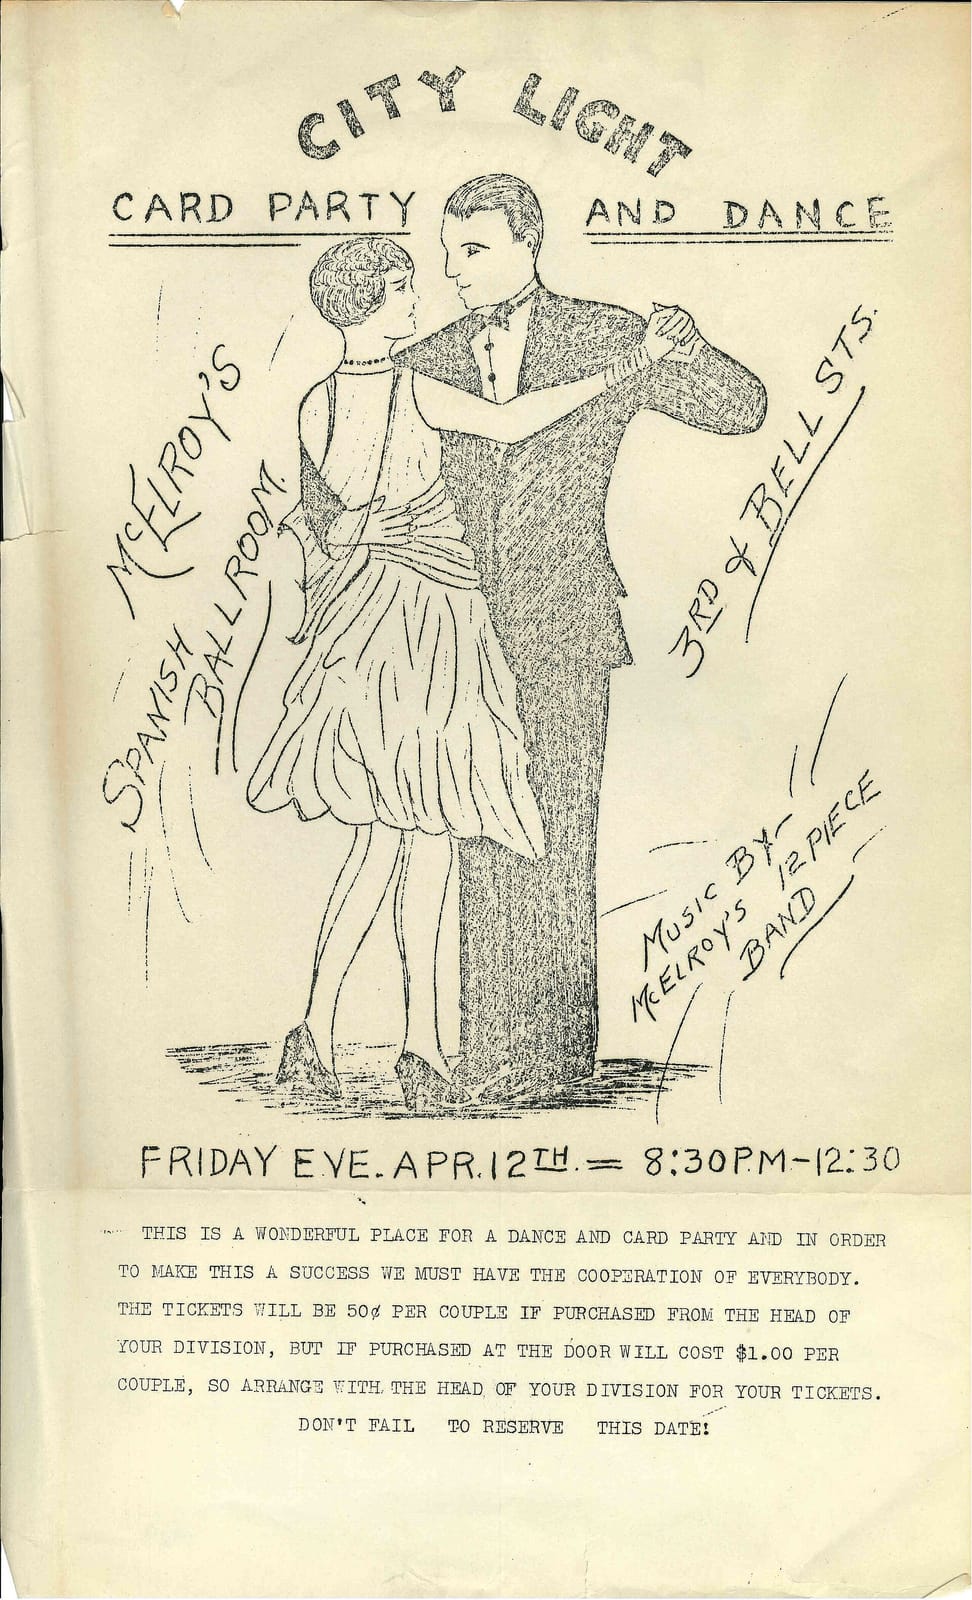 CITY LIGHT
CARD PARTY AND DANCE
McELROY'S
SPANISH
BALLROOM.
3RD & BELL STS.
MUSIC BY-
McELROY'S 12 PIECE
BAND
FRIDAY EVE. APR. 12TH. = 8:30 P.M - 12:30
THIS IS A WONDERFUL PLACE FOR A DANCE AND CARD PARTY AND IN ORDER
TO MAKE THIS A SUCCESS WE MUST HAVE THE COOPERATION OF EVERYBODY.
THE TICKETS WILL BE 50¢ PER COUPLE IF PURCHASED FROM THE HEAD OF
YOUR DIVISION, BUT IF PURCHASED AT THE DOOR WILL COST $1.00 PER
COUPLE, SO ARRANGE WITH THE HEAD OF YOUR DIVISION FOR YOUR TICKETS.
DON'T FAIL TO RESERVE THIS DATE!